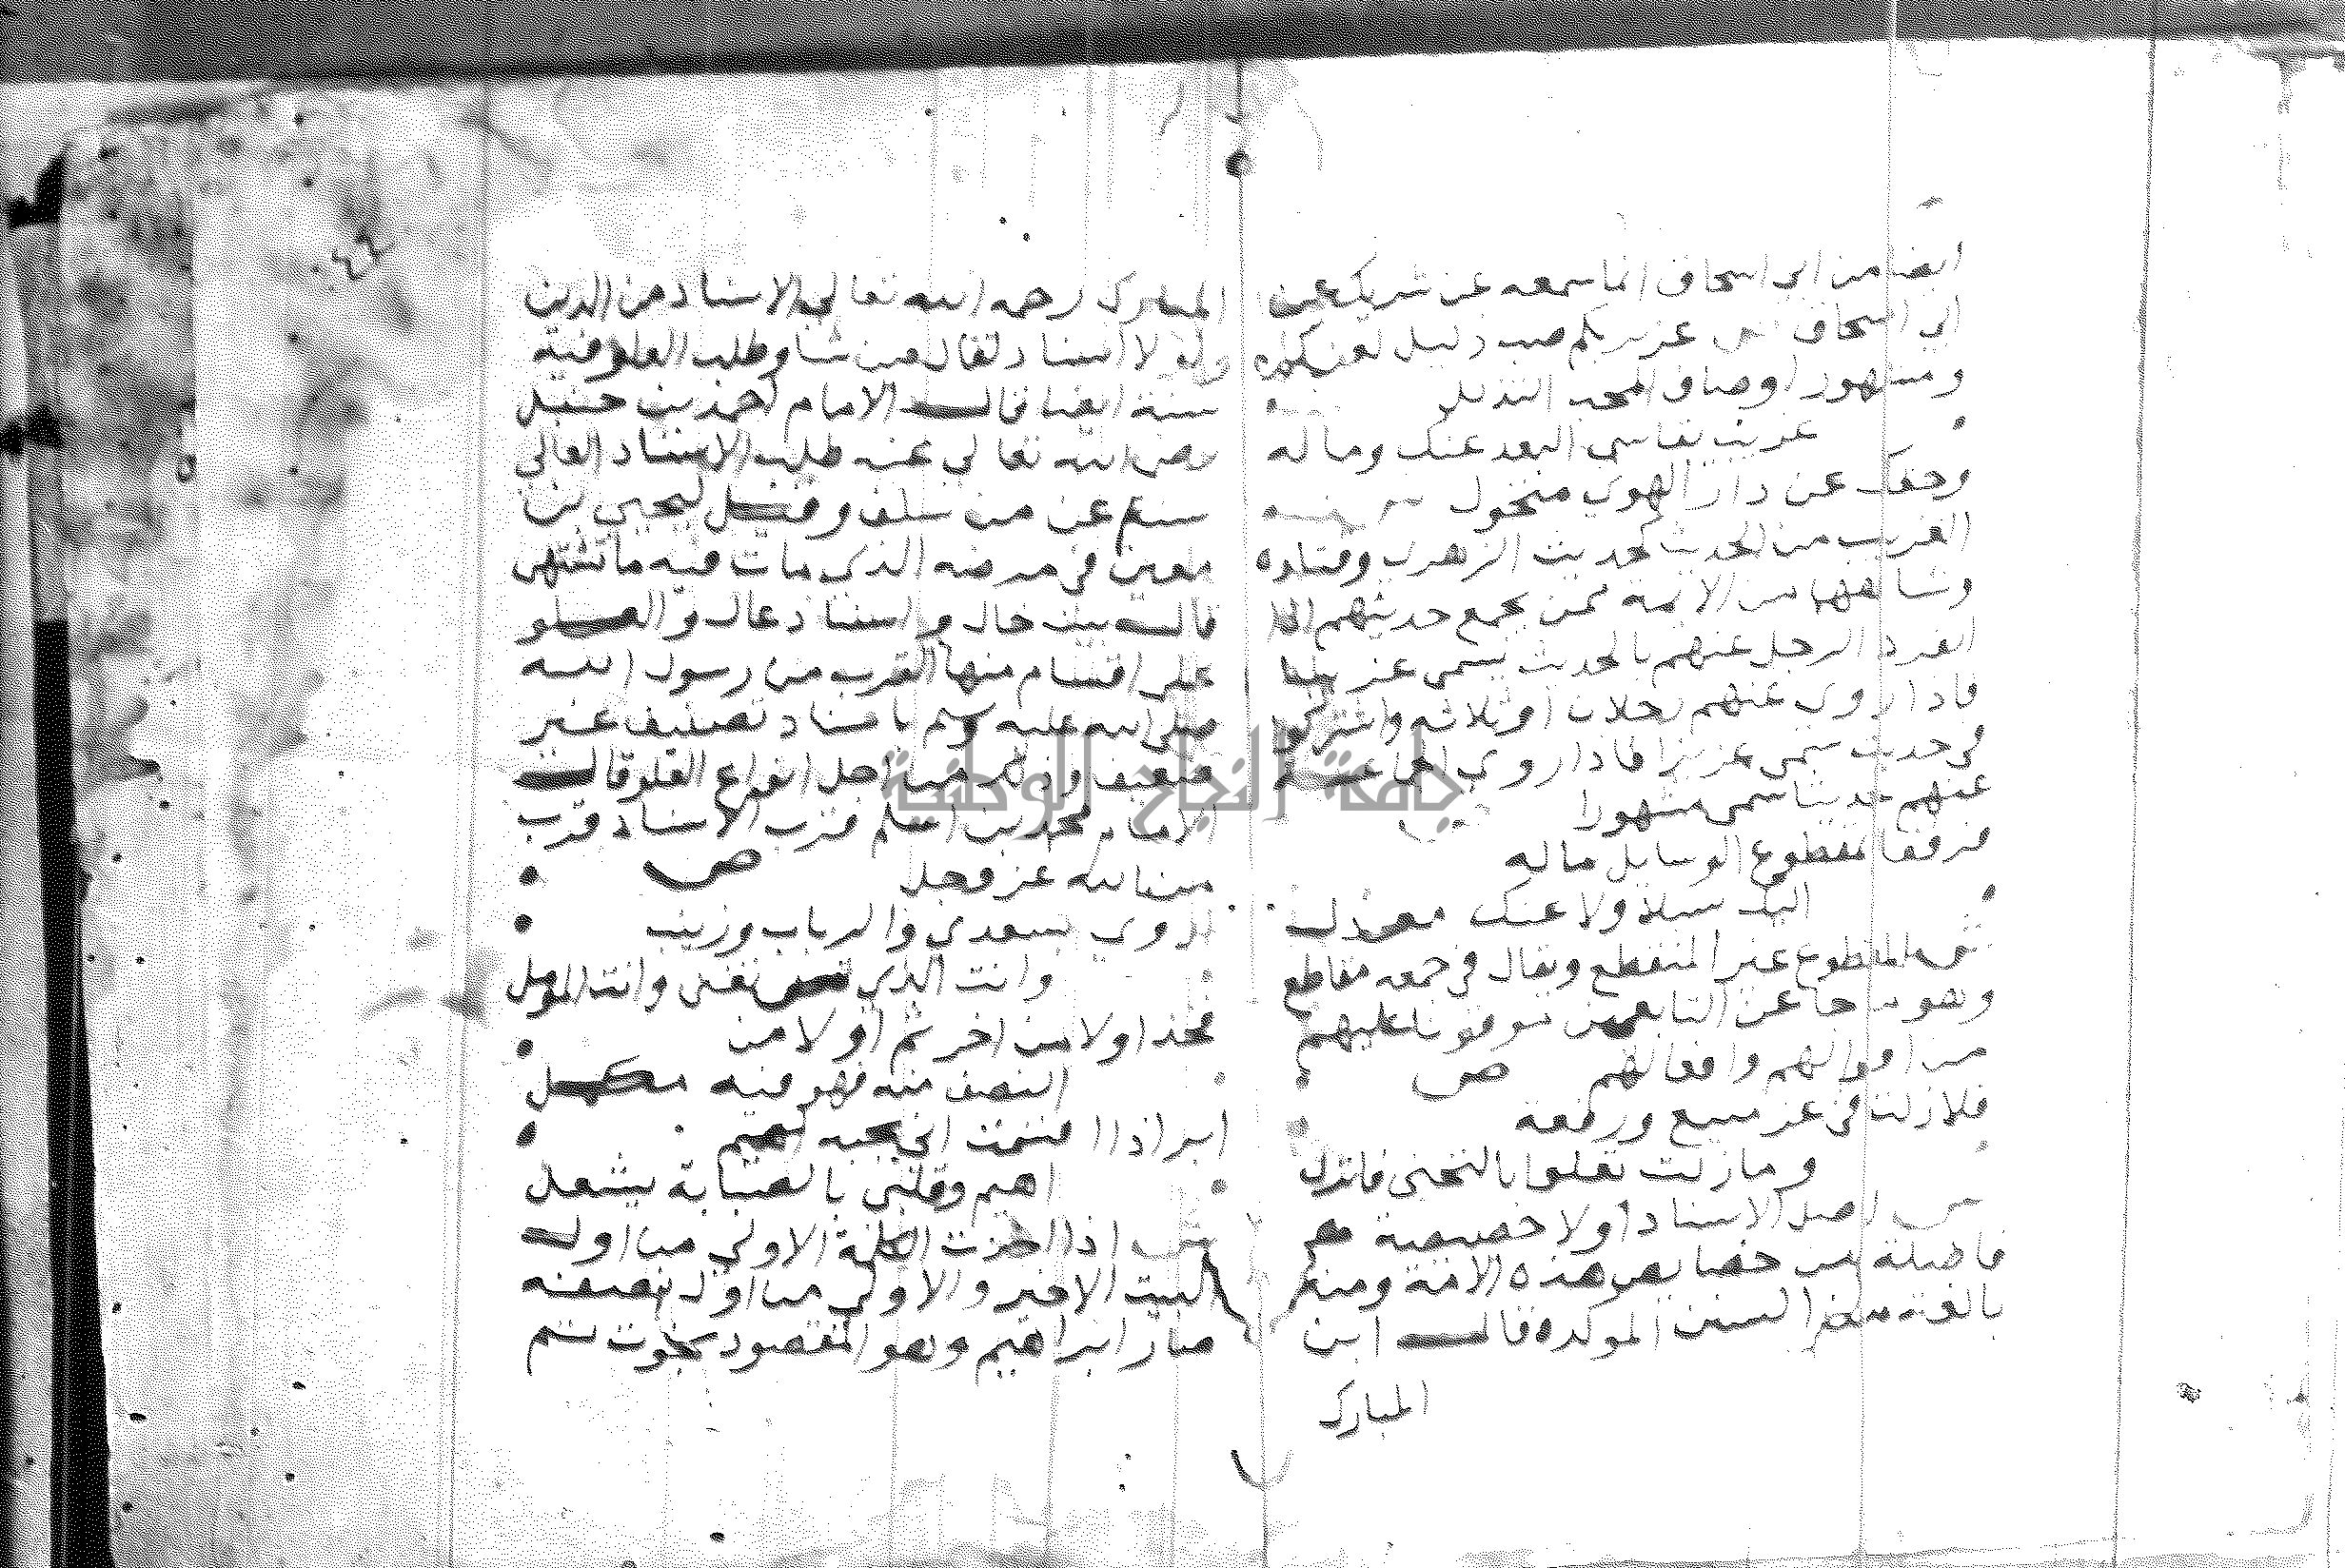 ايضا من ابي اسحاق انما سمعه عن شريك عن
ابي اسحاق ص عزيز بكم صب ذليل لعزكم
ومشهور اوصاف المحب التذلل
غريب يقاسي البعد عنك وماله
وحقك عن دار الهوي متحول
الغريب من الحديث كحديث الزهري وقتاده
وشابههما من الائمة ممن يجمع حديثهم اذا
انفرد الرجل عنهم بالحديث يسمى غريبا
فاذا روي عنهم رجلان او ثلاثه واشتركوا
في حديث سمي عزيزا فاذا روي الجماعة
عنهم حديثا سمي مشهورا
فرفقا بمقطوع الوسايل ماله
اليك سبيل ولا عنك معدل
المقطوع غير المنقطع ويقال في جمعه مقاطع
وهو ما جا عن التابعين موقوفا عليهم
من اقوالهم وافعالهم ص
فلازلت في عز منيع ورفعة
وما زلت تعلوا بالتجني فانزل
ش اصل الاسناد اولا خصيصة
فاضلة من خصايص هذه الامة وسنة
بالغة من السنن الموكده قال ابن
المبارك
المبارك رحمه الله تعالي الاسناد من الدين
ولولا الاسناد لقال من شا وطلب العلو فيه
سنة ايضا قال الامام احمد بن حنبل
رضي الله تعالي عنه طلب الاسناد العالي
سنة عن من سلف وقيل ليحيي بن
معين في مرضه الذي مات فيه ما تشتهي
قال بيت خال واسناد عال والعلو
على اقسام منها القرب من رسول الله
صلى الله عليه وسلم باسناد نضيف غير
ضعيف وذلك من اجل انواع العلو قال
الامام محمد بن اسلم قرب الاسناد قرب
من الله عز وجل ص
اوري بسعدي والرباب وزينب
وانت الذي تعني وانت المومل
فخذ اولا من اخر ثم اولا من
النصف منه فهو فيه مكمل
ابر اذا اقسمت اني بحبه اهيم
اهيم وقلبي بالصبابة يشعل
ش اذا اخذت الكلمة الاولي من اول
البيت الاخير والاولي من اول نصفه
صار ابراهيم وهو المقصود